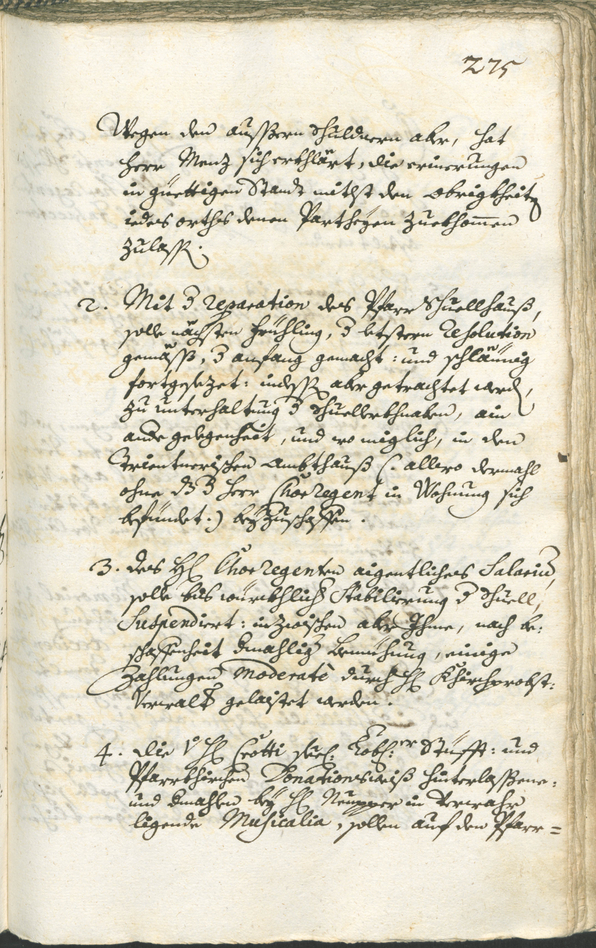 275
Wegen den äussern Schuldnern aber, hat
Herr Menz sich erkhlärt, die erinerungen
in güettigen Standt mithst den obrigkheiten
iedes orths denen Partheyen zuekhomen
zulassen.
2. Mit der Reparation des Pfarr Schuellhauß,
solle nägsten Früehling, der letstern Resolution
gemäß, der anfang gemacht: und schleünig
fortgesezet: indessen aber getrachtet werden,
zu unterhaltung der Schuellerkhnaben, ain
ande gelegenheit, und wo miglich, in den
Trientnerischen Ambthauß (: allwo dermahl
ohne das der Herr Chorregent in Wohnung sich
befündet:) beyzuschaffen.
3. Des Hl Chorregenten aigentliches Salarium,
solle bis würkhlich Stabilierung der Schuell,
Suspendiert: inzwischen aber Ihme, nach be:
schaffenheit dmahlig bemühung, einige
Zahlungen moderatè durch Hl Khirchprobst:
Verwalter gelaistet werden.
4. Die v Hl seel: Löbl: Stüfft: und
Pfarrkhirchen Donationsweiß hinterlassene:
und dmahlen bey Hl in Verwahr
ligende Musicalia, sollen auf den Pfarr=